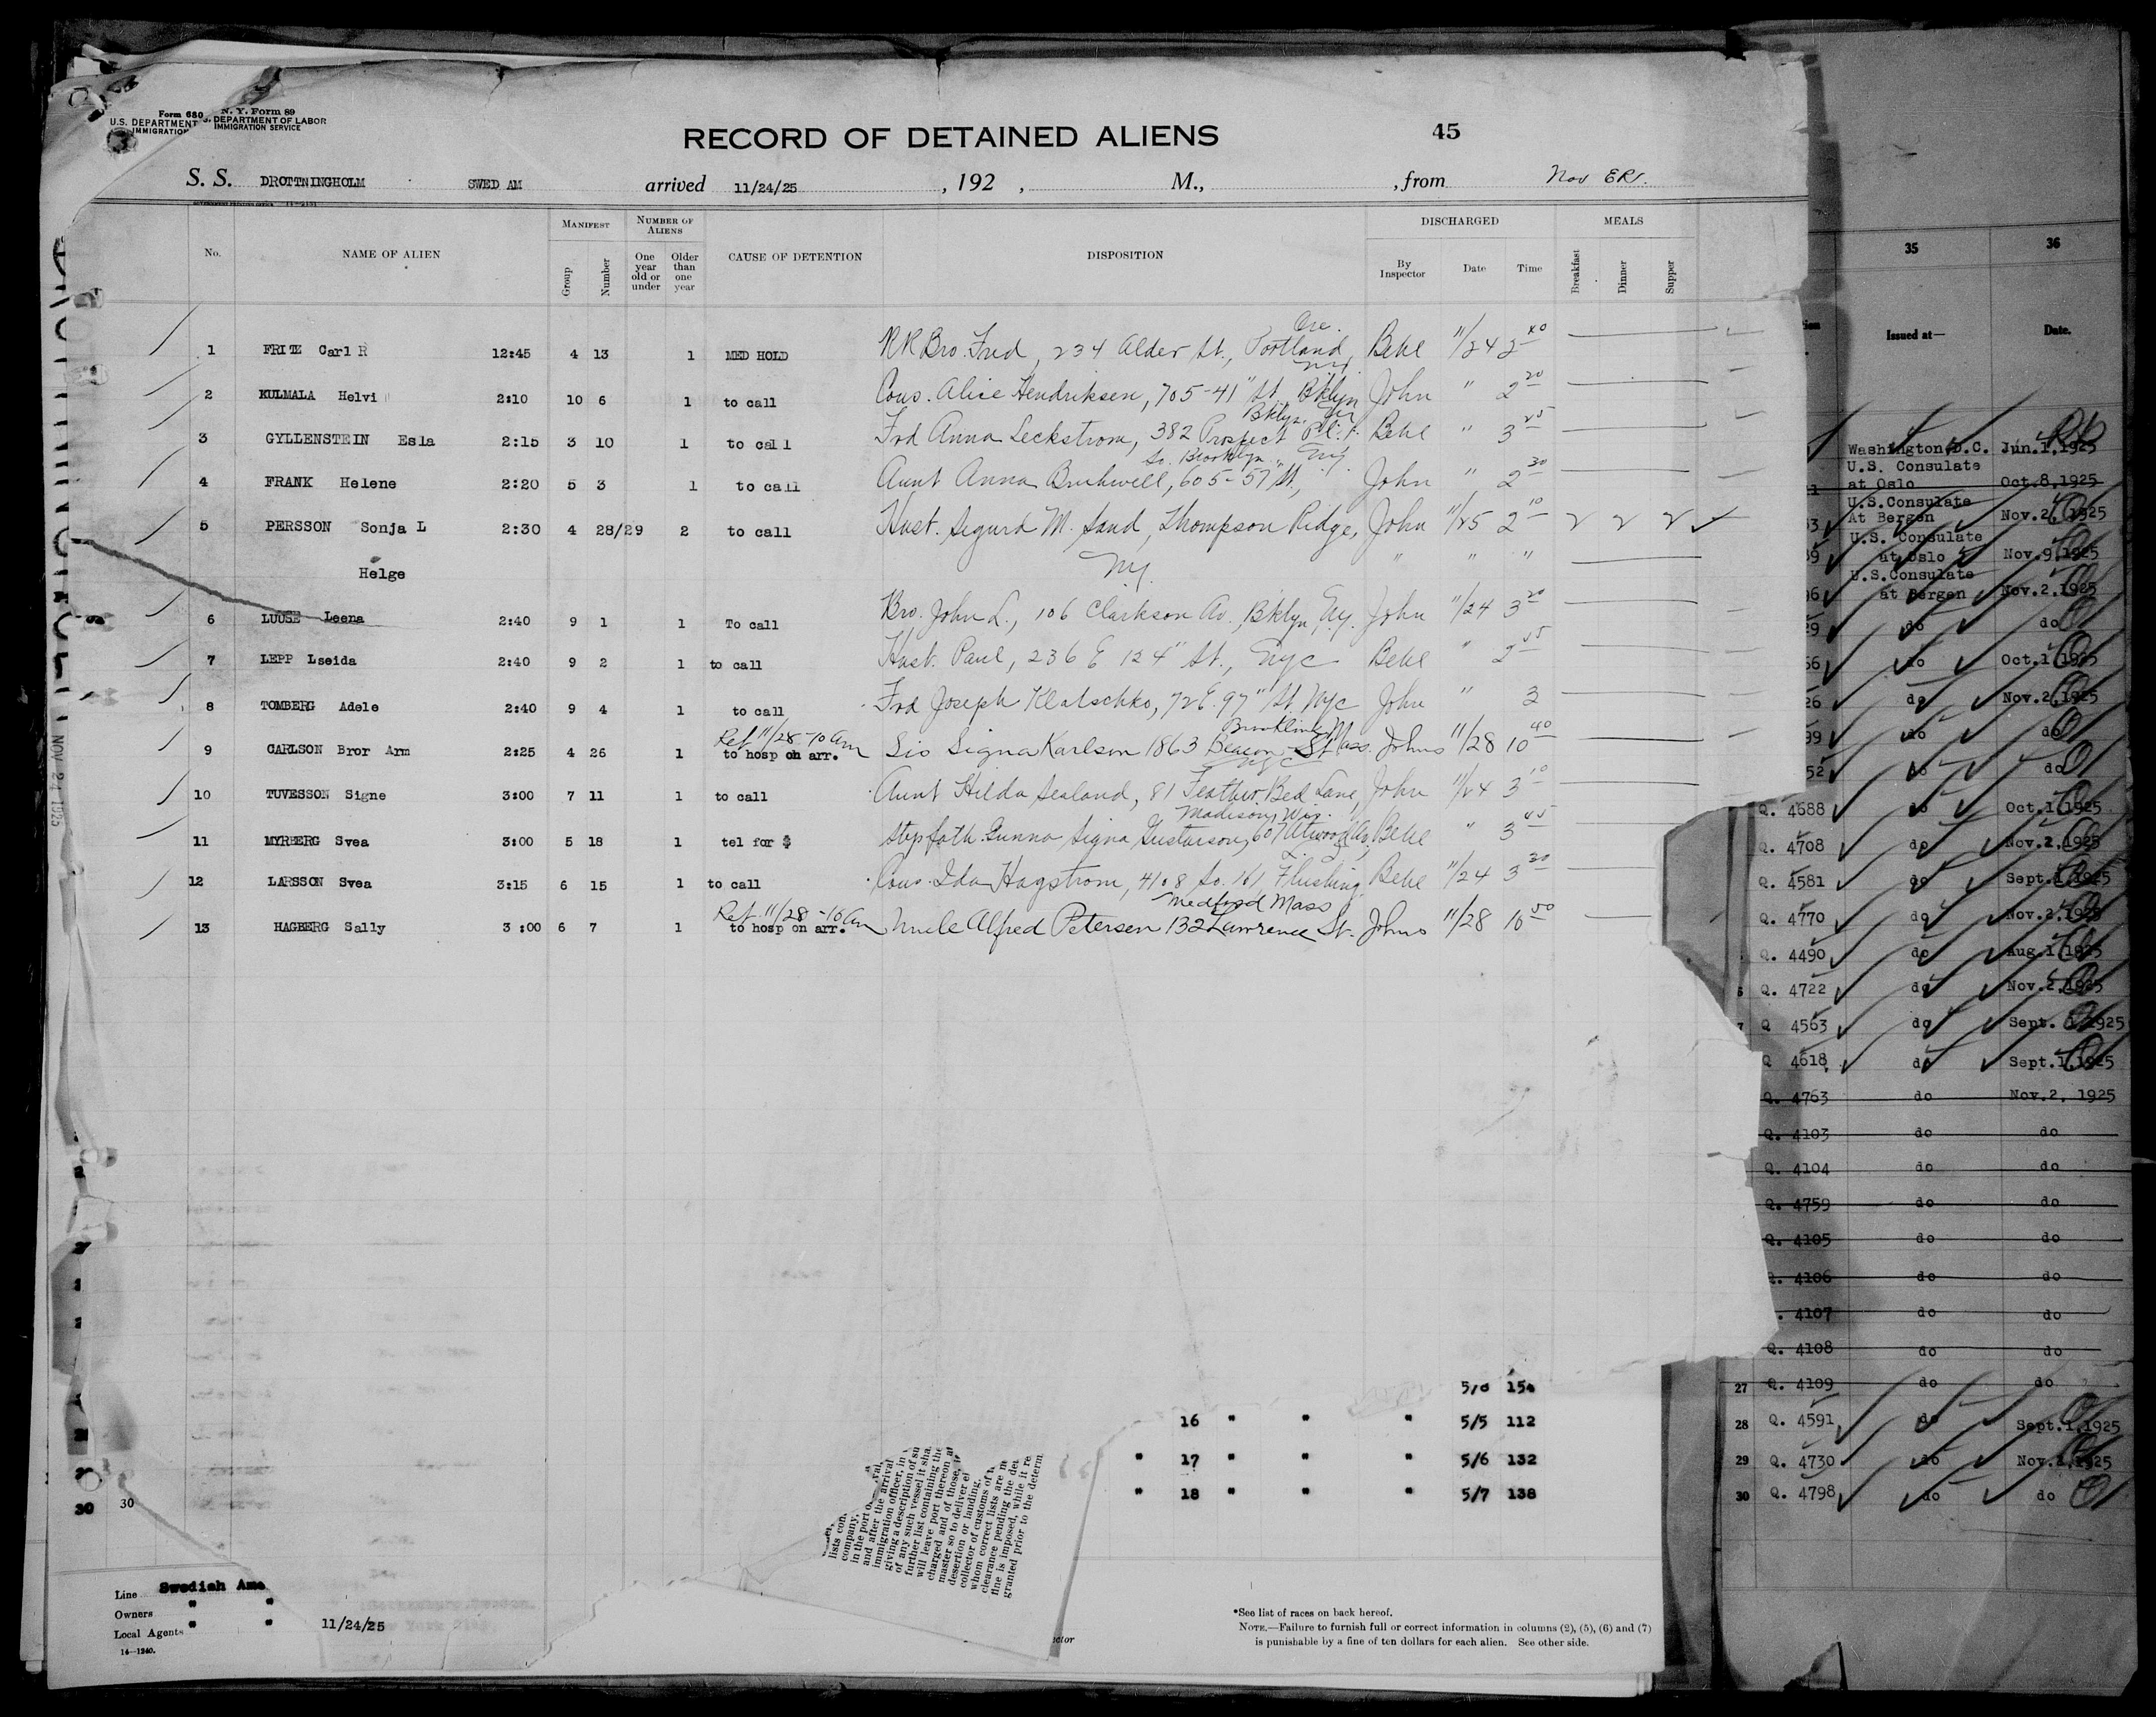 Form 680
U.S. DEPARTMENT
IMMIGRATION
N. Y. Form 89
DEPARTMENT OF LABOR
IMMIGRATION SERVICE
RECORD OF DETAINED ALIENS 45
S. S. DROTTNINGHOLM SWED AM arrived 11/24/25, 192 , M., , from
No. NAME OF ALIEN MANIFEST Group Number NUMBER OF ALIENS One year old or under Older than one year CAUSE OF DETENTION DISPOSITION DISCHARGED By Inspector Date Time MEALS Breakfast Dinner Supper
1 FRITZ Carl R 12:45 4 13 1 MED HOLD RR Bro. Fred, 234 Alder St., Portland, Ore. Behl 11/24 2 40
2 KULMALA Helvi 2:10 10 6 1 to call Cous. Alice Hendriksen, 705-41" St. Bklyn NY John " 2 20
3 GYLLENSTEIN Esla 2:15 3 10 1 to call Frd Anna Leckstrom, 382 Prospect Pl. Bklyn Behl " 3 25
4 FRANK Helene 2:20 5 3 1 to call Aunt Anna Bushwell, 605-57" St., So. Brooklyn, NY. John " 2 30
5 PERSSON Sonja L 2:30 4 28/29 2 to call Hust. Sigurd M. Sand, Thompson Ridge, John 11/25 2 10
Helge NY. " " "
6 LUUSE Leena 2:40 9 1 1 To call Bro. John L., 106 Clarkson Av., Bklyn, NY. John 11/24 3 20
7 LEPP Lseida 2:40 9 2 1 to call Hust. Paul, 236 E 124" St., NYC Behl " 2 45
8 TOMBERG Adele 2:40 9 4 1 to call Frd Joseph Klatschko, 72 E. 97" St. NYC John " 3
9 CARLSON Bror Arm 2:25 4 26 1 Ret 11/28-10 am to hosp on arr. Sis Signa Karlson 1863 Beacon St Brookline Mass. Johns 11/28 10 40
10 TUVESSON Signe 3:00 7 11 1 to call Aunt Hilda Sealand, 81 Feather Bed Lane, NYC John 11/24 3 10
11 MYRBERG Svea 3:00 5 18 1 tel for $ Stepfath. Gunno Signa Gustavson, 607 Atwood Av., Madison, Wis. Behl " 3 45
12 LARSSON Svea 3:15 6 15 1 to call Cous. Ida Hagstrom, 4108 So. 161, Flushing L. I., Behl 11/24 3 30
13 HAGBERG Sally 3:00 6 7 1 Ret 11/28-10 am to hosp on arr. Uncle Alfred Petersen 132 Lawrence St. Medford Mass Johns 11/28 10 50
NOV 24 1925
154
16 " " " 5/5 112
" 17 " " " 5/6 132
" 18 " " " 5/7 138
30 30
lists con
company,
in the port o
and after the arrival
immigration officer, in
giving a description of
of any such vessel it sha
further list containing the
will leave port thereon at
charged and of those, if
master so to deliver
desertion or landing,
collector of customs of
whom correct lists are
clearance pending the det
fine is imposed, while it re
granted prior to the determ
Line Swedish Ame
Owners " "
Local Agents " "
14—1240.
11/24/25
*See list of races on back hereof.
NOTE.—Failure to furnish full or correct information in columns (2), (5), (6) and (7)
is punishable by a fine of ten dollars for each alien. See other side.
35 36
Issued at— Date.
Washington, D.C. Jun.1,1925
U.S. Consulate
at Oslo Oct.8,1925
U.S.Consulate
At Bergen Nov.2,1925
U.S. Consulate
at Oslo Nov.9,1925
U.S.Consulate
at Bergen Nov.2,1925
do do
do Oct.1,1925
do Nov.2,1925
do do
do do
Q. 4688 do Oct.1,1925
Q. 4708 do Nov.2,1925
Q. 4581 do Sept.1,1925
Q. 4770 do Nov.2,1925
Q. 4490 do Aug.1,1925
Q. 4722 do Nov.2,1925
Q 4563 do Sept.1,1925
Q 4618 do Sept.1,1925
Q. 4763 do Nov.2, 1925
Q. 4103 do do
Q. 4104 do do
Q. 4759 do do
Q. 4105 do do
Q. 4106 do do
4107 do do
Q. 4108 do do
27 Q. 4109 do do
28 Q. 4591 do Sept.1,1925
29 Q. 4730 do Nov.2,1925
30 Q. 4798 do do